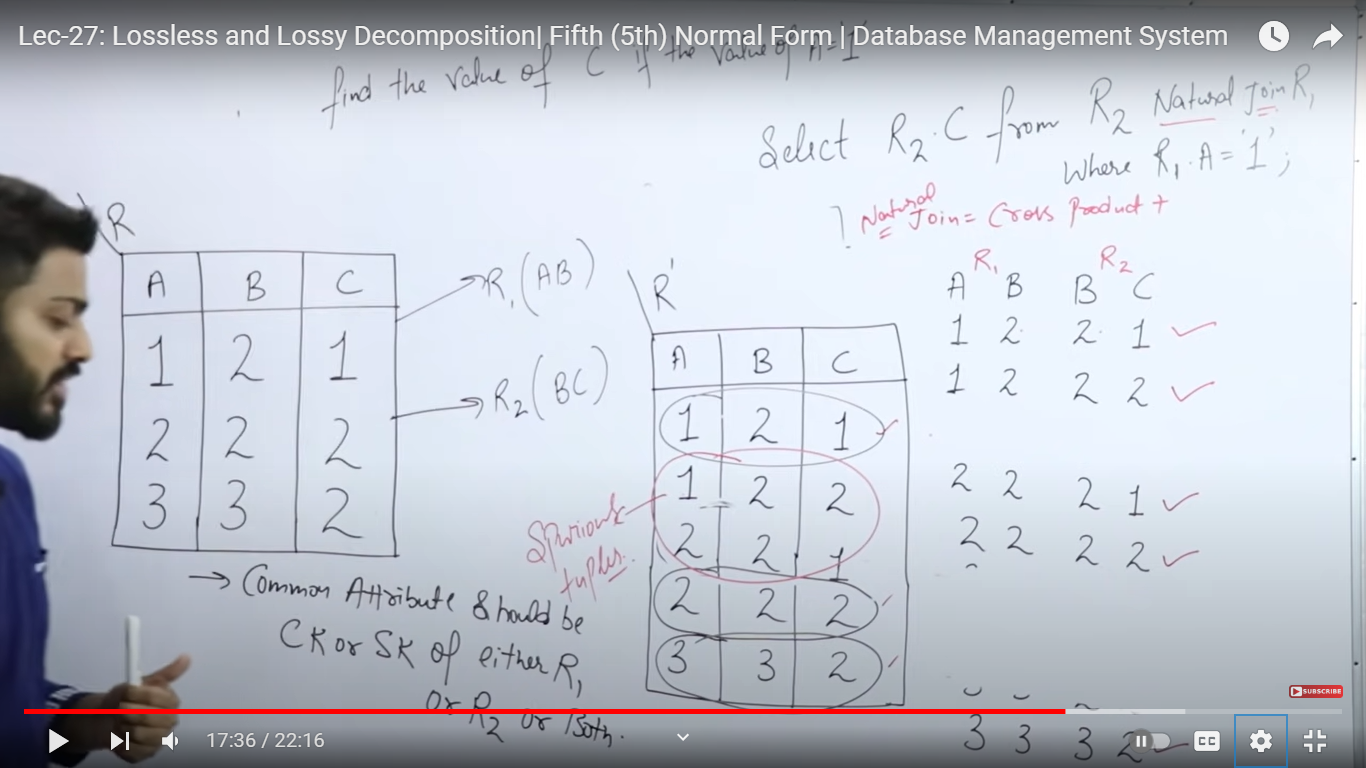 Lec-27: Lossless and Lossy Decomposition| Fifth (5th) Normal Form | Database Management System
find the value of C if the value of A = 1
Select R2.C from R2 Natural Join R1
Where R1.A = '1';
Natural Join = Cross Product +
R
A B C
1 2 1
2 2 2
3 3 2
R1(AB)
R2(BC)
→ Common Attribute should be
CK or SK of either R1
or R2 or Both.
R'
A B C
1 2 1
1 2 2
2 2 1
2 2 2
3 3 2
Spurious
tuples.
R1 R2
A B B C
1 2 2 1
1 2 2 2
2 2 2 1
2 2 2 2
3 3 3 2
SUBSCRIBE
17:36 / 22:16
CC